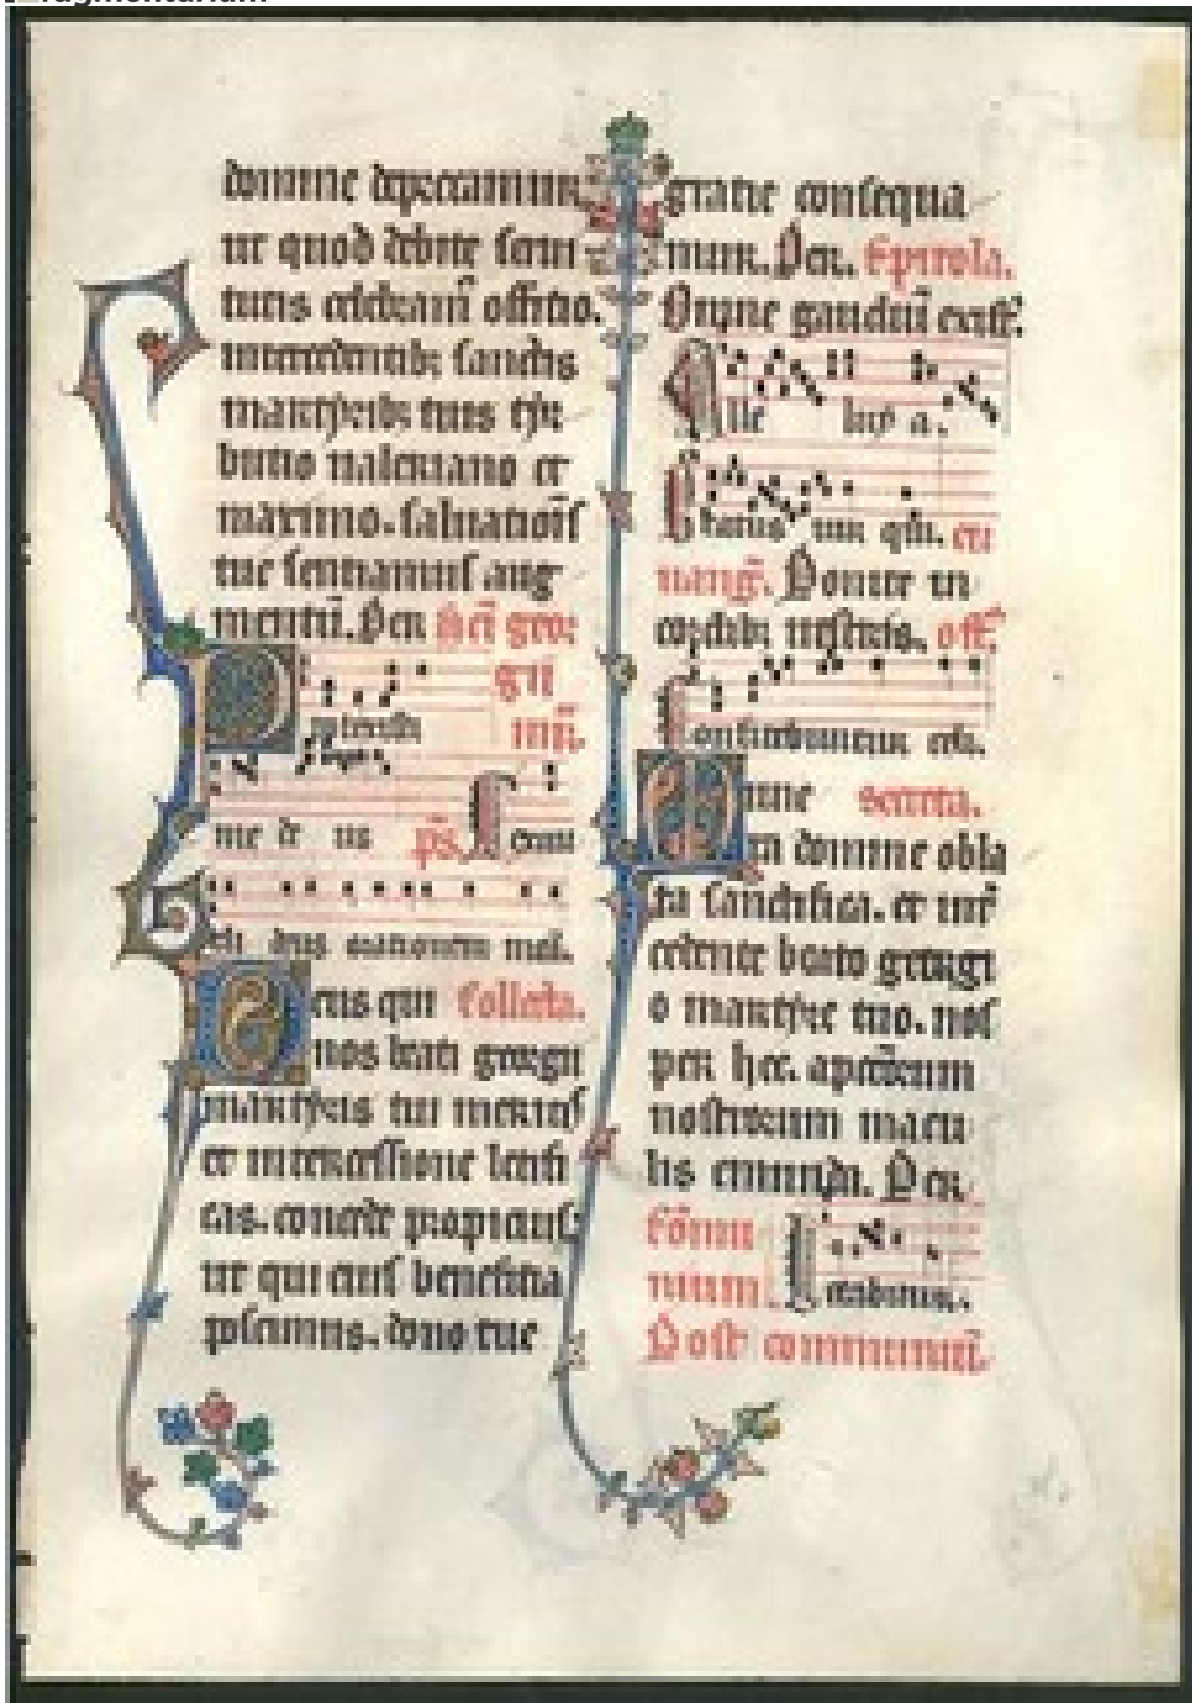 fragmentarium
domine deprecamur.
ut quod debite servi
tutis celebram̄ officio.
intercedentib; sanctis
martyrib; tuis tyb
burtio valeriano et
maximo. salvatiois
tue sentiamus aug
mentū. Per Sc̄i geor
gii
Protexisti mr̄.
me de us ps̄. Exau
di deus orationem meā.
Deus qui Collecta.
nos beati georgii
martyris tui meritis
et intercessione letifi
cas. concede propicius;
ut qui eius beneficia
poscimus. dono tue
gratie consequa
mur. Per. Epistola.
Omne gaudiū exist̄.
Alle luy a.
Beatus vir qui. eu
vang̃. Ponite in
cordib; vestris. off̄.
Confitebuntur celi.
Munera secreta.
domine obla
ta sanctifica. et int̄
cedente beato georgi
o martyre tuo. nos
per hec. a peccatorum
nostrorum macu
lis emunda. Per
Cōmu
nium. Letabitur.
Post communiō.